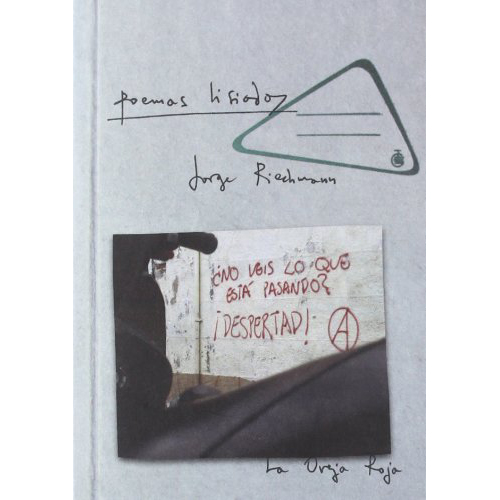 poemas lisiados
Jorge Riechmann
¿NO VEIS LO QUE
ESTÁ PASANDO?
¡DESPERTAD! Ⓐ
La Oveja Roja